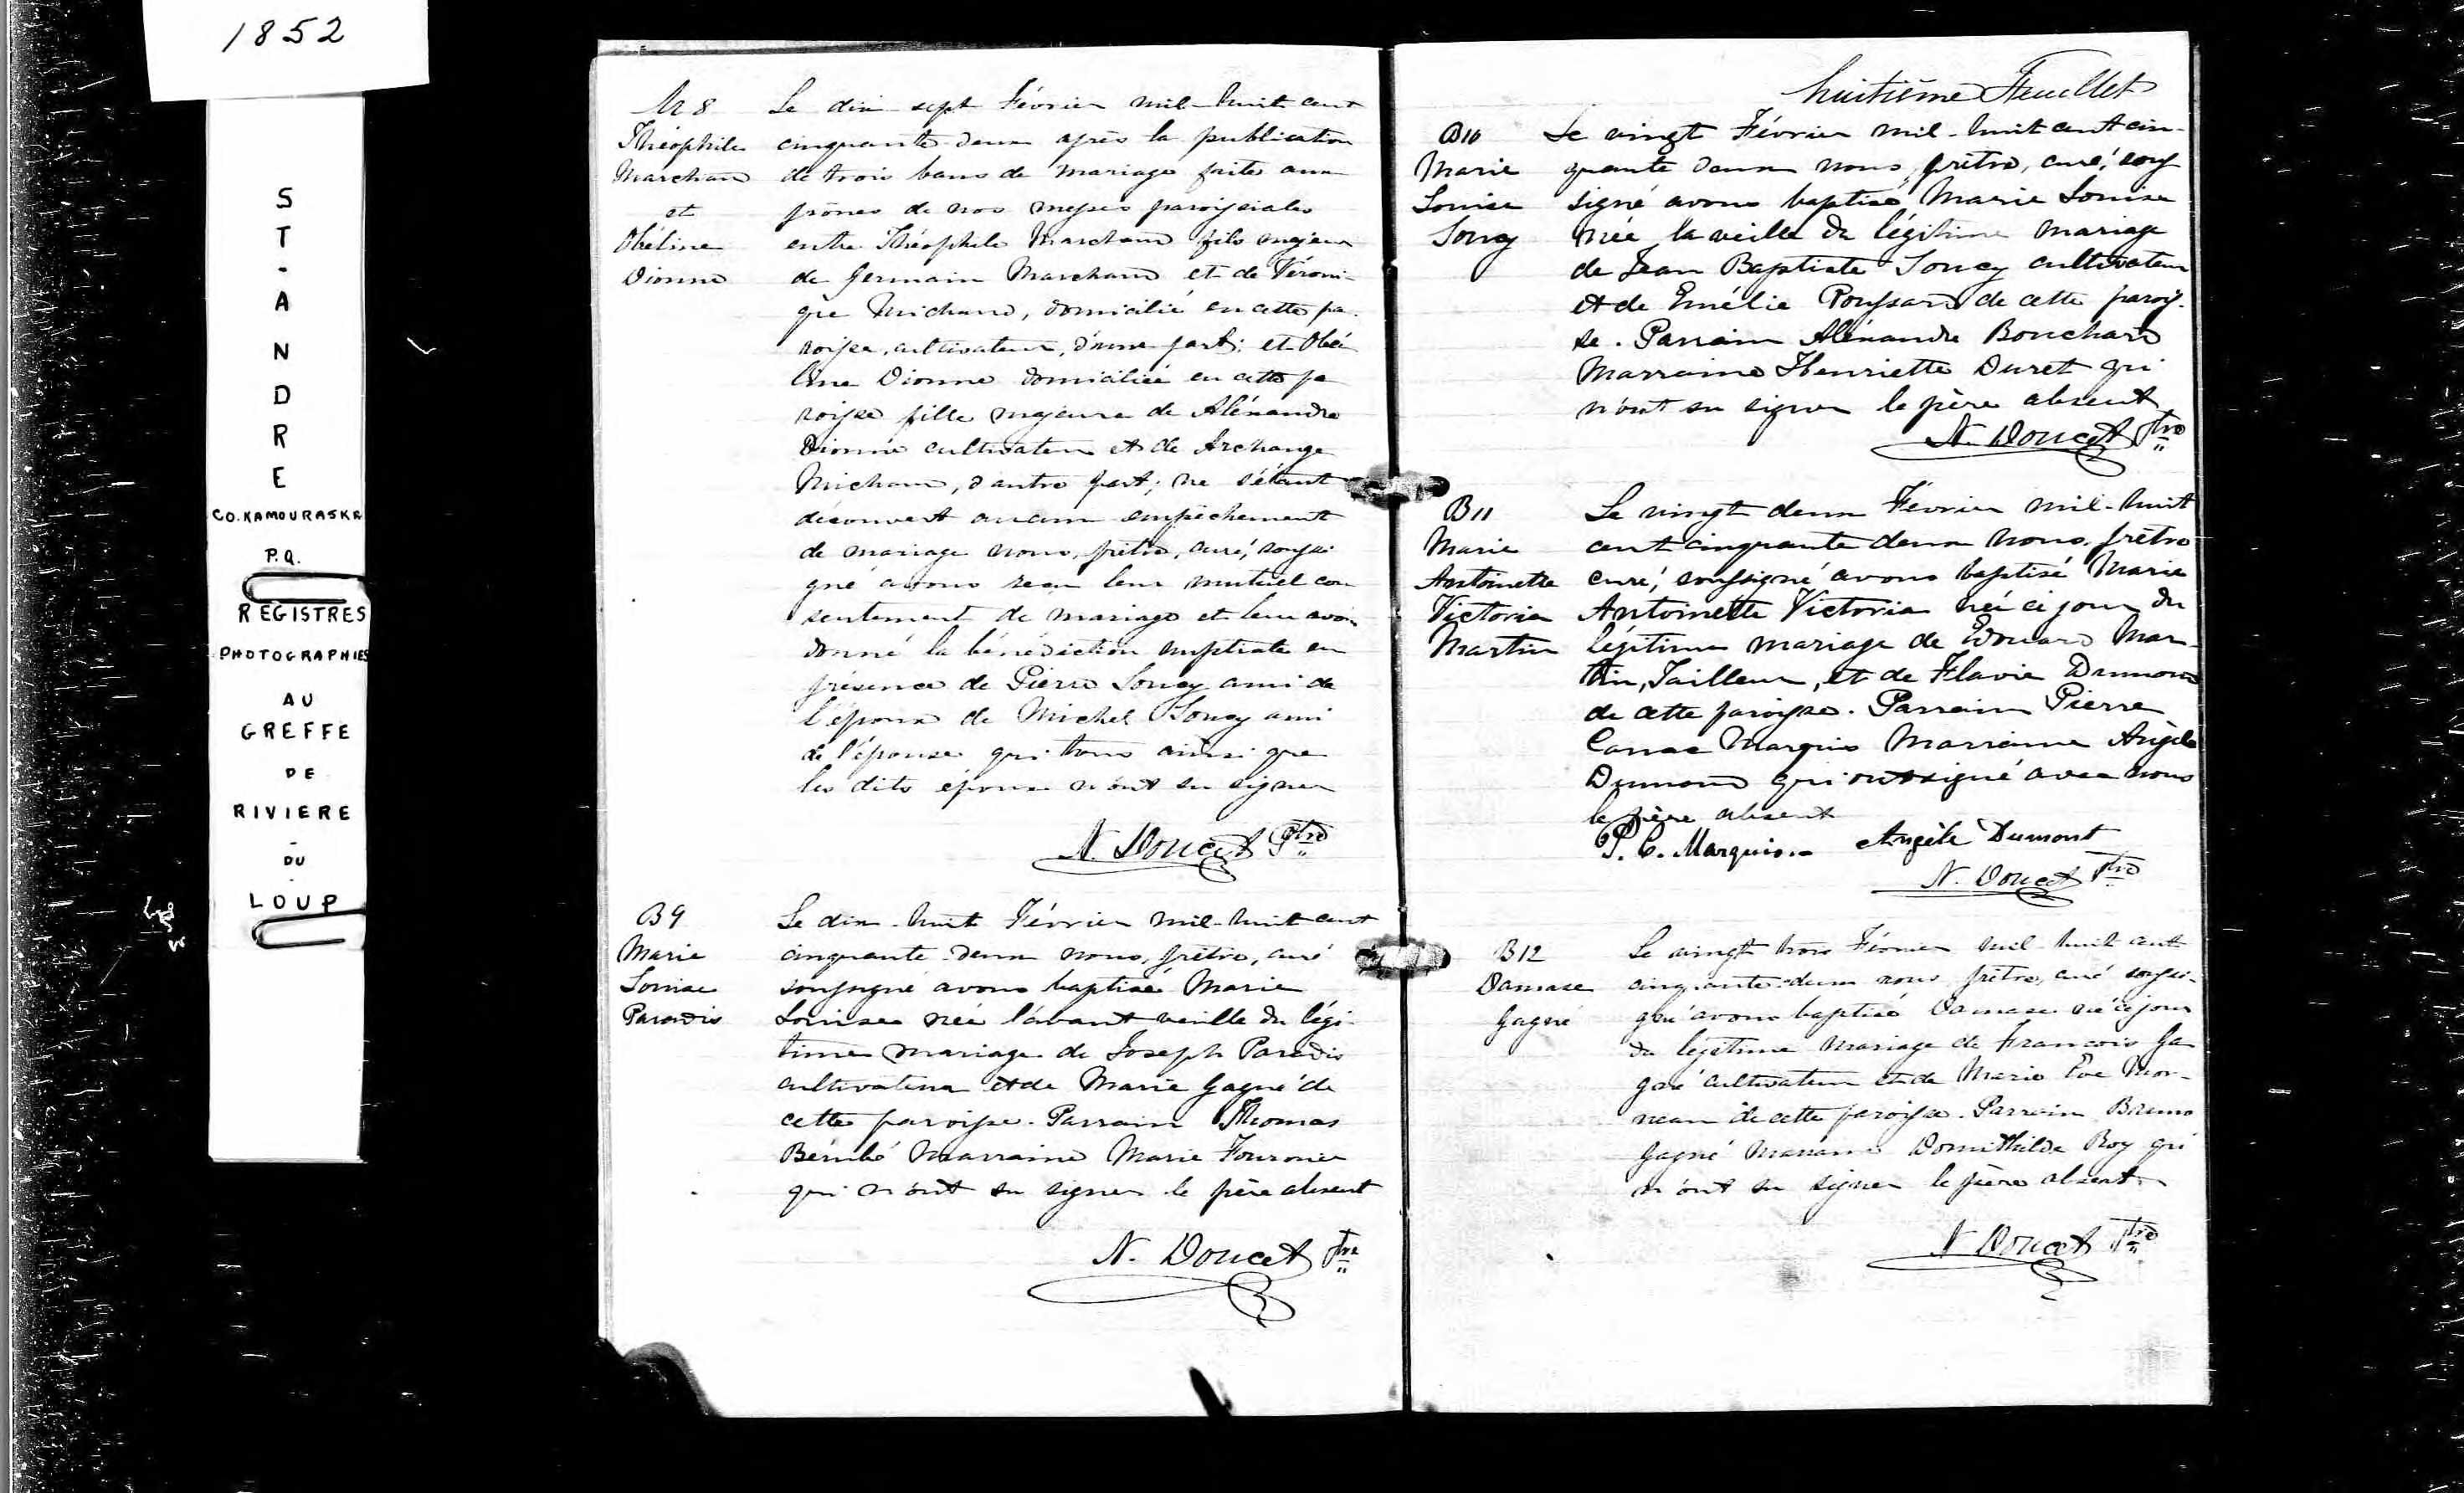 1852
ST-ANDRE
CO. KAMOURASKA
P.Q.
REGISTRES
PHOTOGRAPHIES
AU
GREFFE
DE
RIVIERE
-
DU
-
LOUP
M 8
Théophile
Marchand
et
Obéline
Dionne
Le dix sept Février mil-huit cent
cinquante-deux après la publication
de trois bans de mariage faite aux
prônes de nos messes paroissiales
entre Théophile Marchand fils majeur
de Germain Marchand et de Véroni-
que Michaud, domicilié en cette pa-
roisse, cultivateur, d'une part; et Obé
line Dionne domiciliée en cette pa
roisse fille majeure de Aléxandre
Dionne cultivateur et de Archange
Michaud, d'autre part; ne s'étant
découvert aucun empêchement
de mariage nous, prêtre, curé, soussi
gné avons reçu leur mutuel con
sentement de mariage et leur avons
donné la bénédiction nuptiale en
présence de Pierre Soucy ami de
l'époux de Michel Soucy ami
de l'épouse qui tous ainsi que
les dits époux n'ont su signer
N. Doucet Ptre
B 9
Marie
Louise
Paradis
Le dix-huit Février mil-huit cent
cinquante-deux nous, prêtre, curé
soussigné avons baptisé Marie
Louise née l'avant veille du légi-
time mariage de Joseph Paradis
cultivateur et de Marie Gagné de
cette paroisse. Parrain Thomas
Bérubé Marraine Marie Fournier
qui n'ont su signer le père absent
N. Doucet Ptre
huitième Feuillet
B10
Marie
Louise
Soucy
Le vingt Février mil-huit cent cin-
quante deux nous, prêtre, curé, sous
signé avons baptisé Marie Louise
née la veille du légitime mariage
de Jean Baptiste Soucy cultivateur
et de Emélie Poussard de cette parois-
se. Parrain Aléxandre Bouchard
Marraine Henriette Duret qui
n'ont su signer le père absent
N. Doucet Ptre
B11
Marie
Antoinette
Victoria
Martin
Le vingt deux Février mil-huit
cent cinquante deux nous, prêtre
curé, soussigné avons baptisé Marie
Antoinette Victoria née ce jour du
légitime mariage de Edouard Mar-
tin, Tailleur, et de Flavie Dumond
de cette paroisse. Parrain Pierre
Canac Marquis Marraine Angèle
Dumond qui ont signé avec nous
le père absent
P. C. Marquis. Angèle Dumont
N. Doucet Ptre
B12
Damase
Gagné
Le vingt trois Février mil-huit cent
cinquante-deux nous prêtre, curé soussi-
gné avons baptisé Damase né ce jour
du légitime mariage de Francois Ga
gné cultivateur et de Marie Eve Mor-
neau de cette paroisse. Parrain Bruno
Gagné Marraine Domithilde Roy qui
n'ont su signer le père absent
N Doucet Ptre